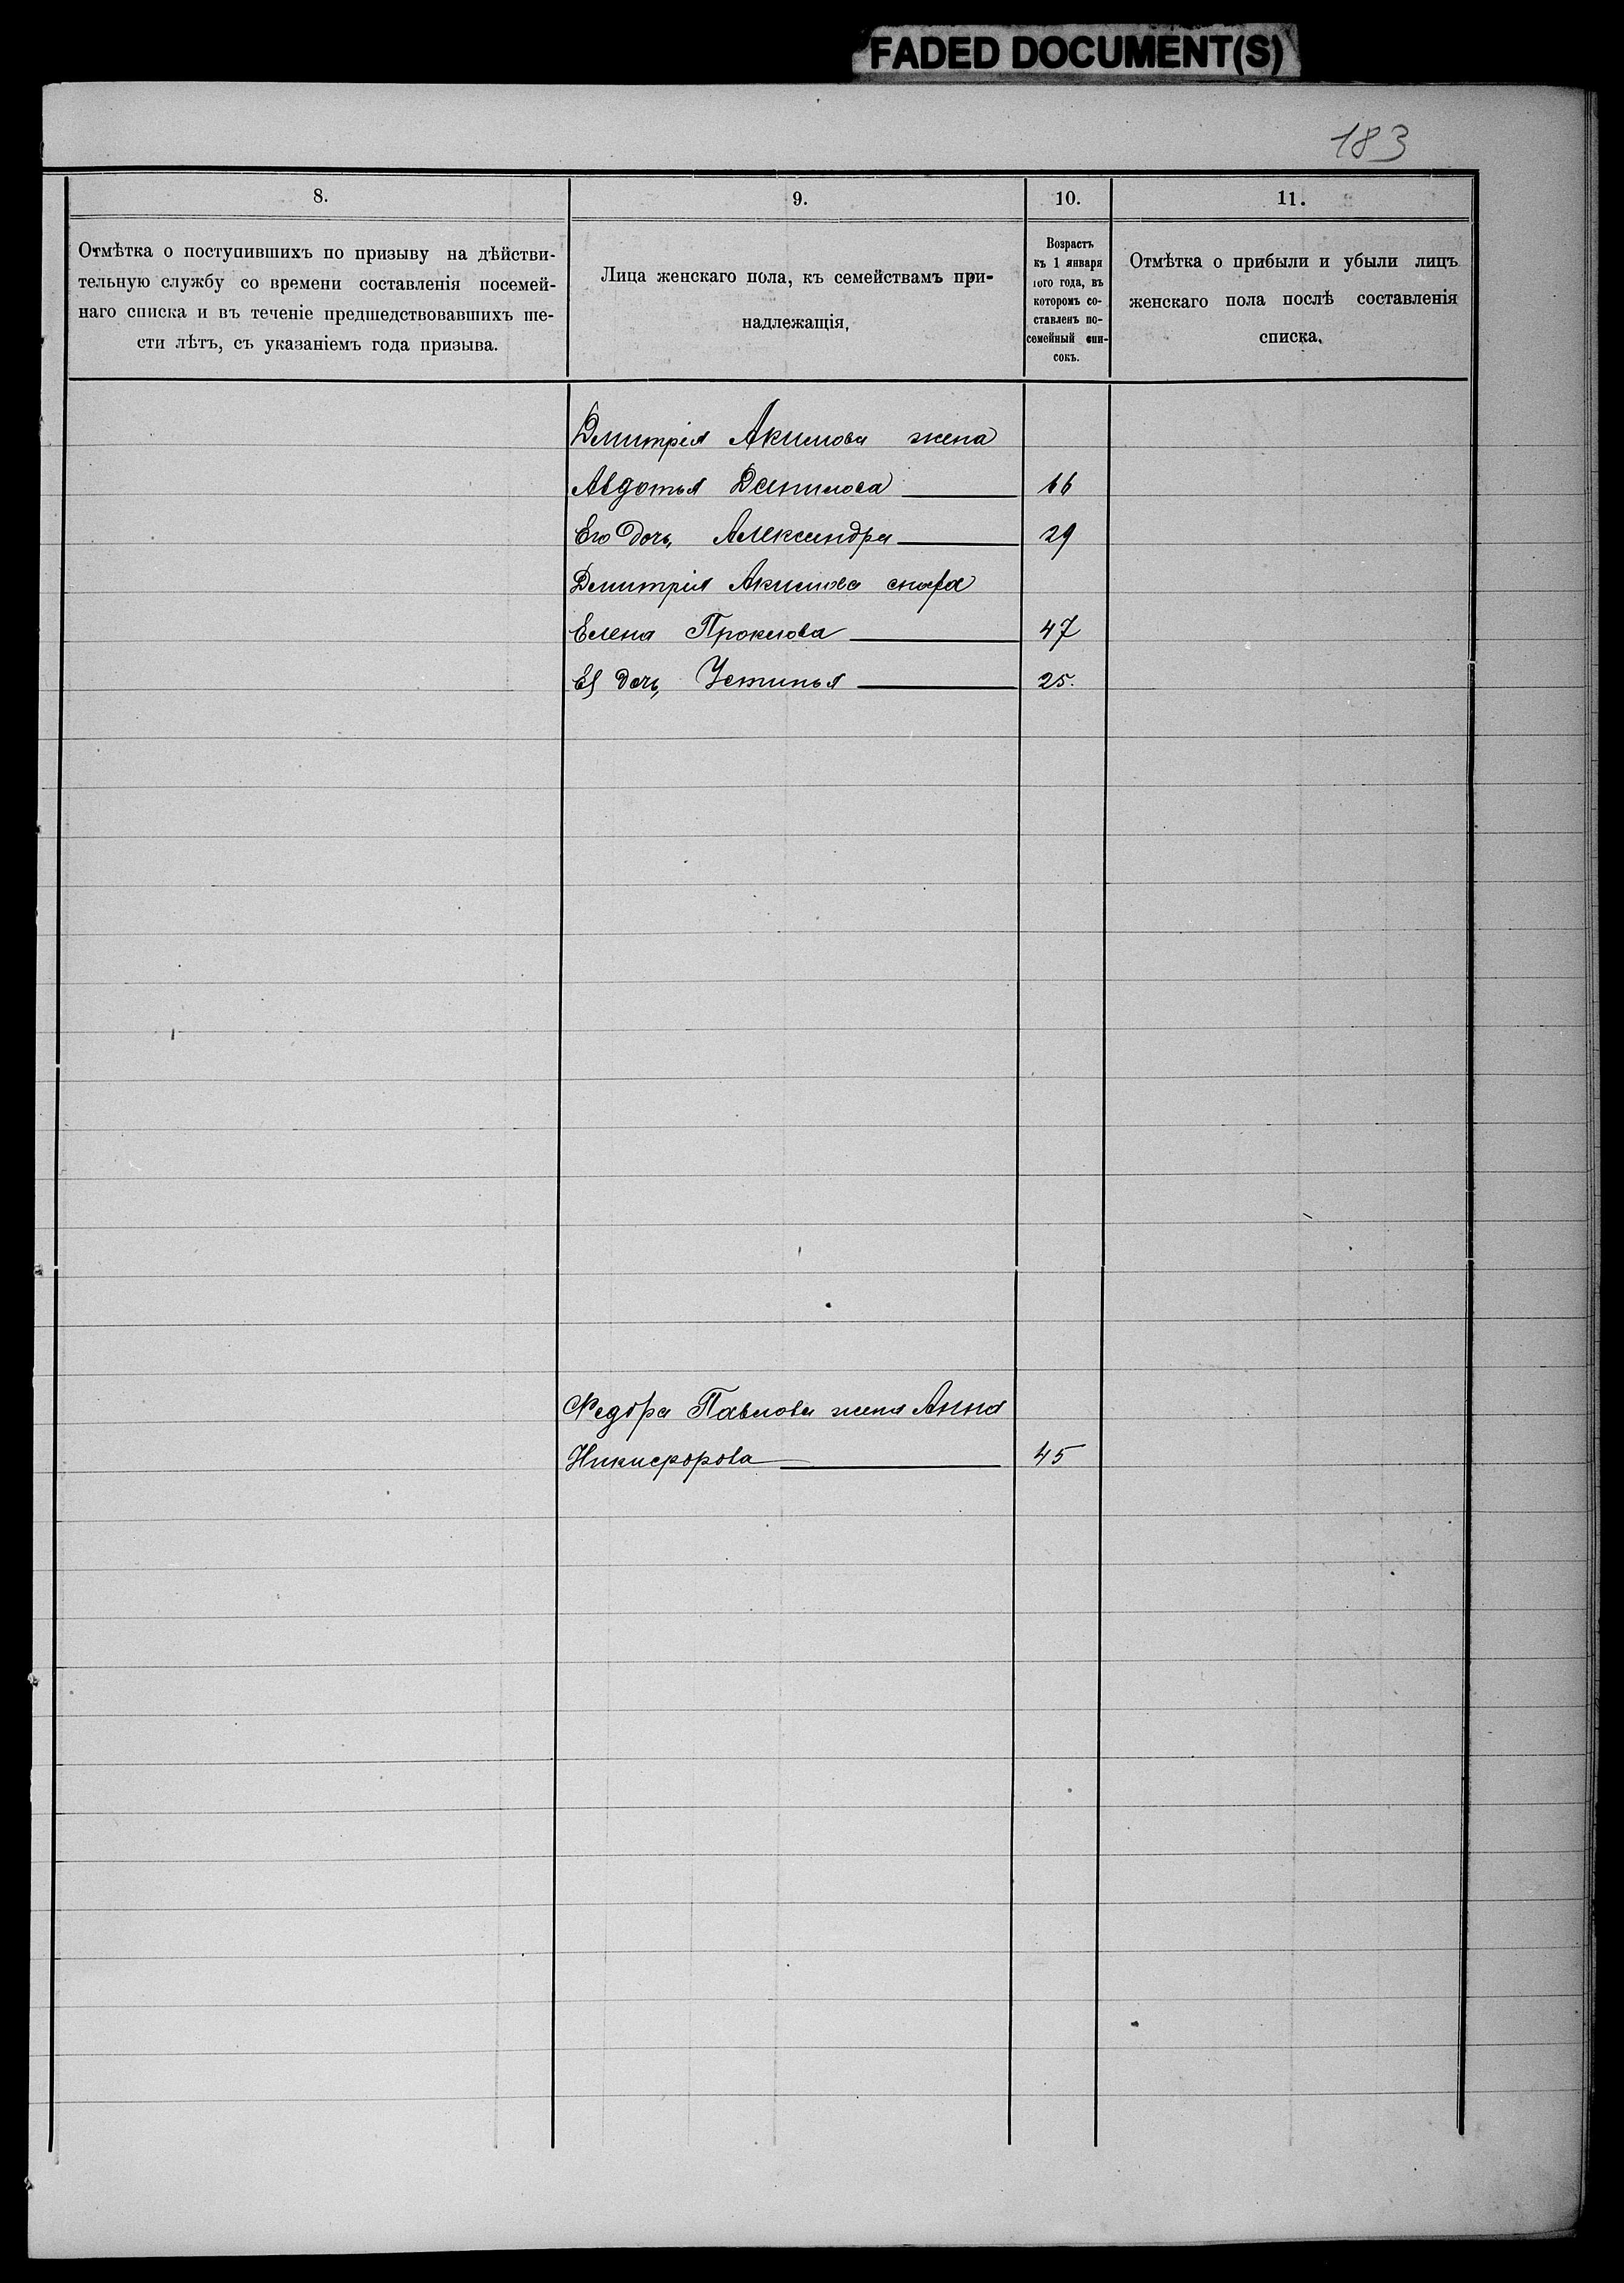 FADED DOCUMENT(S)
183
8.
9.
10.
11.
Отмѣтка о поступившихъ по призыву на дѣйстви-
тельную службу со времени составленія посемей-
наго списка и въ теченіе предшедствовавшихъ ше-
сти лѣтъ, съ указаніемъ года призыва.
Лица женскаго пола, къ семействамъ при-
надлежащія,
Возрастъ
къ 1 января
того года, въ
которомъ со-
ставленъ по-
семейный спи-
сокъ.
Отмѣтка о прибыли и убыли лицъ
женскаго пола послѣ составленія
списка.
Дмитрія Акимова жена
Авдотья Данилова 66
Его дочь Александра 29
Дмитрія Акимова сноха
Елена Проклова 47
Ея дочь Устинья 25.
Федора Павлова жена Анна
Никифорова 45